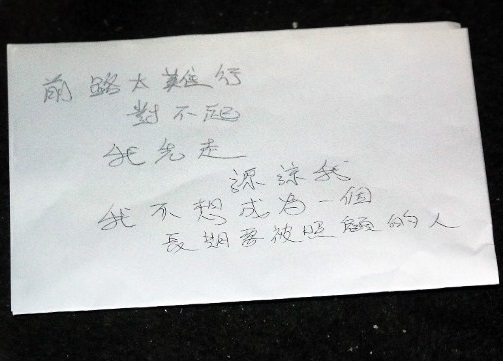 前路太難行
對不起
我先走
源諒我
我不想成為一個
長期要被照顧的人